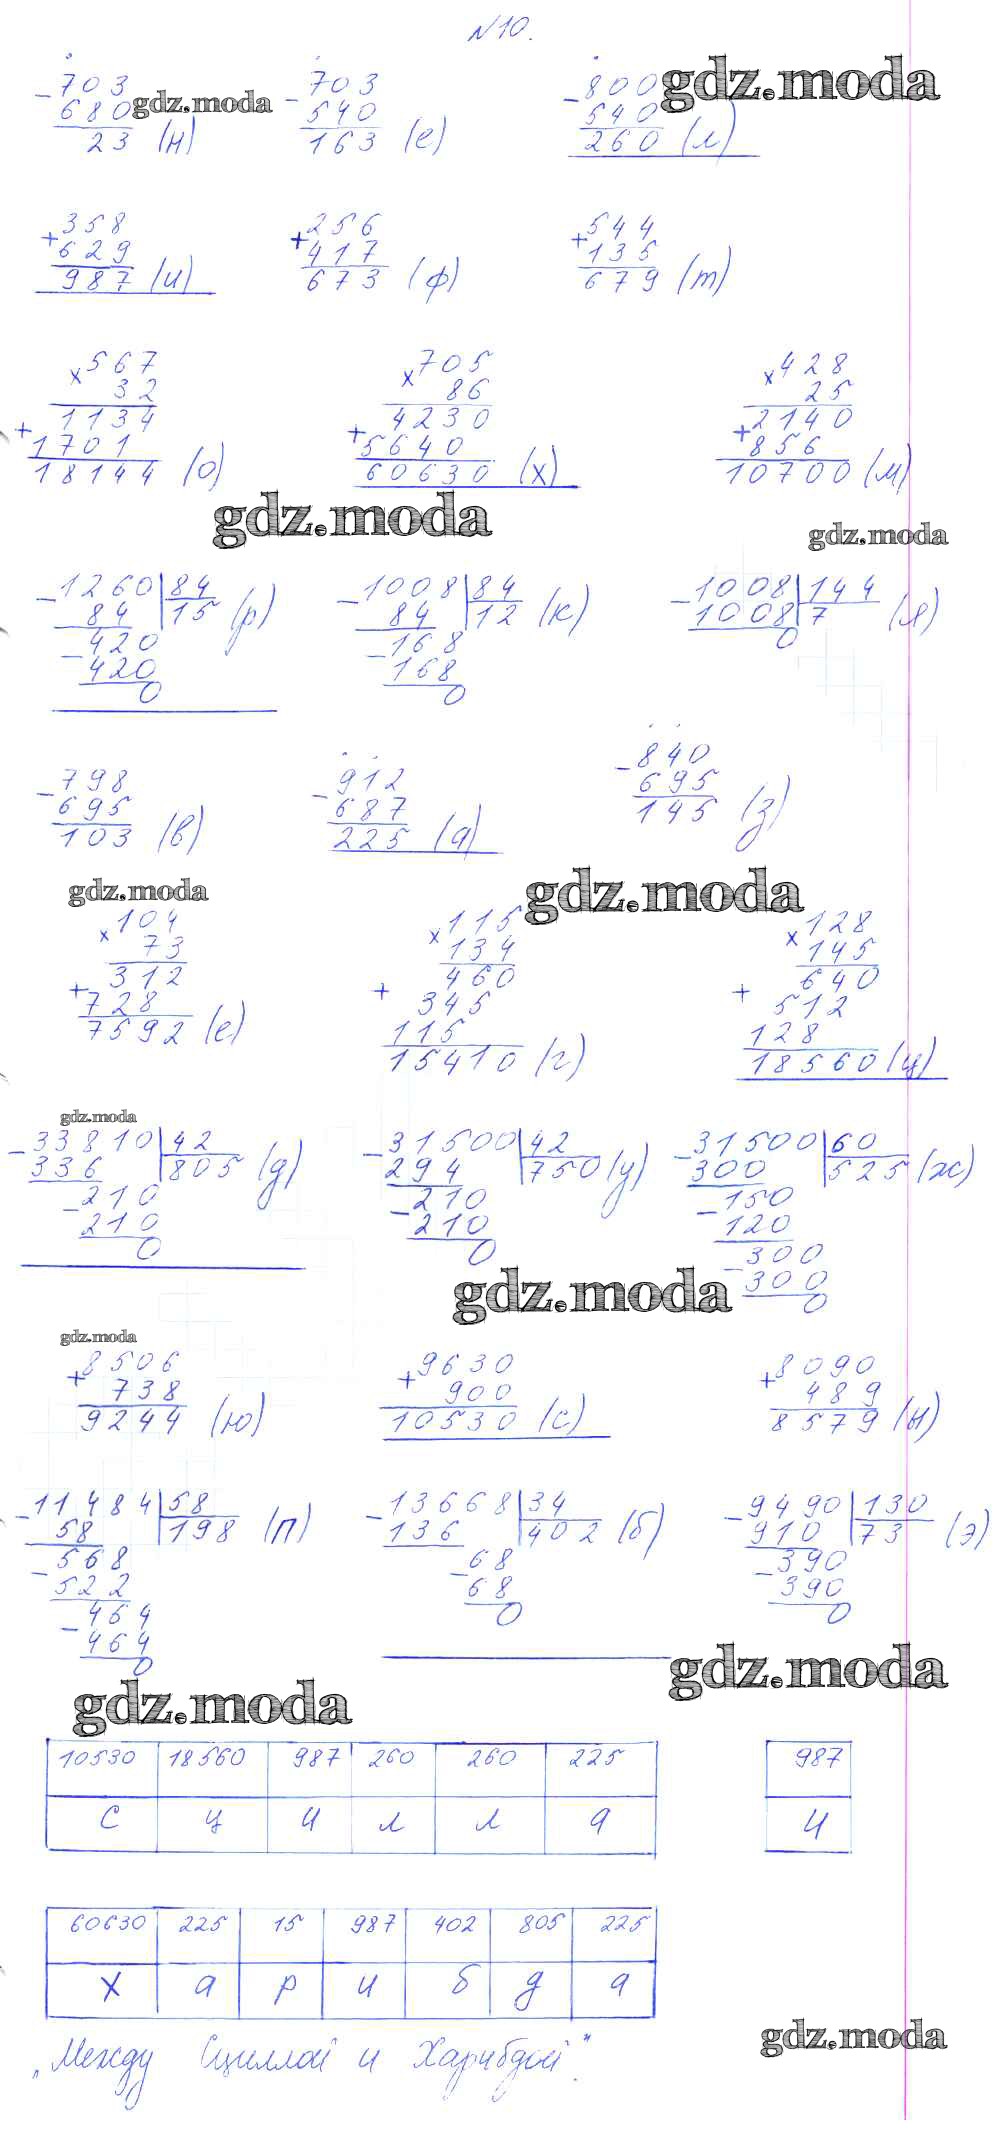 №10.
703 703 800
- 680 - 540 - 540
23 (н) 163 (е) 260 (л)
gdz.moda gdz.moda
358 256 544
+ 629 + 417 + 135
987 (и) 673 (ф) 679 (т)
× 567 × 705 × 428
32 86 25
1134 4230 2140
+ 1701 + 5640 + 856
18144 (о) 60630 (х) 10700 (м)
gdz.moda gdz.moda
- 1260 | 84 - 1008 | 84 - 1008 | 144
84 15 (р) 84 12 (к) 1008 7 (я)
- 420 - 168 0
420 168
0 0
- 798 - 912 - 840
695 687 695
103 (в) 225 (а) 145 (з)
gdz.moda gdz.moda
× 104 × 115 × 128
73 134 145
312 460 640
+ 728 + 345 + 512
7592 (е) 115 128
15410 (г) 18560 (ц)
gdz.moda
- 33810 | 42 - 31500 | 42 - 31500 | 60
336 805 (д) 294 750 (у) 300 525 (ж)
- 210 - 210 - 150
210 210 120
0 0 - 300
300
0
gdz.moda
gdz.moda
8506 9630 8090
+ 738 + 900 + 489
9244 (ю) 10530 (с) 8579 (н)
- 11484 | 58 - 13668 | 34 - 9490 | 130
58 198 (п) 136 402 (б) 910 73 (э)
- 568 - 68 - 390
522 68 390
- 464 0 0
464
0
gdz.moda
gdz.moda
10530 18560 987 260 260 225 987
С ц и л л а и
60630 225 15 987 402 805 225
Х а р и б д а
gdz.moda
„Между Сциллой и Харибдой".